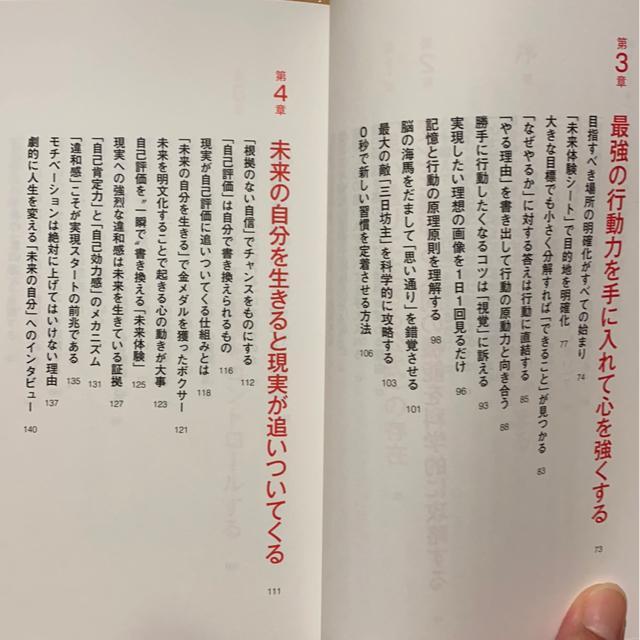 第3章
最強の行動力を手に入れて心を強くする 73
目指すべき場所の明確化がすべての始まり 74
「未来体験シート」で目的地を明確化 77
大きな目標でも小さく分解すれば「できること」が見つかる 83
「なぜやるか」に対する答えは行動に直結する 85
「やる理由」を書き出して行動の原動力と向き合う 88
勝手に行動したくなるコツは「視覚」に訴える 93
実現したい理想の画像を1日1回見るだけ 96
記憶と行動の原理原則を理解する 98
脳の海馬をだまして「思い通り」を錯覚させる 101
最大の敵「三日坊主」を科学的に攻略する 103
0秒で新しい習慣を定着させる方法 106
第4章
未来の自分を生きると現実が追いついてくる 111
「根拠のない自信」でチャンスをものにする 112
「自己評価」は自分で書き換えられるもの 116
現実が自己評価に追いついてくる仕組みとは 118
「未来の自分を生きる」で金メダルを獲ったボクサー 121
未来を明文化することで起きる心の動きが大事 123
自己評価を〝一瞬で〟書き換える「未来体験」 125
現実への強烈な違和感は未来を生きている証拠 127
「自己肯定力」と「自己効力感」のメカニズム 131
「違和感」こそが実現スタートの前兆である 135
モチベーションは絶対に上げてはいけない理由 137
劇的に人生を変える「未来の自分」へのインタビュー 140